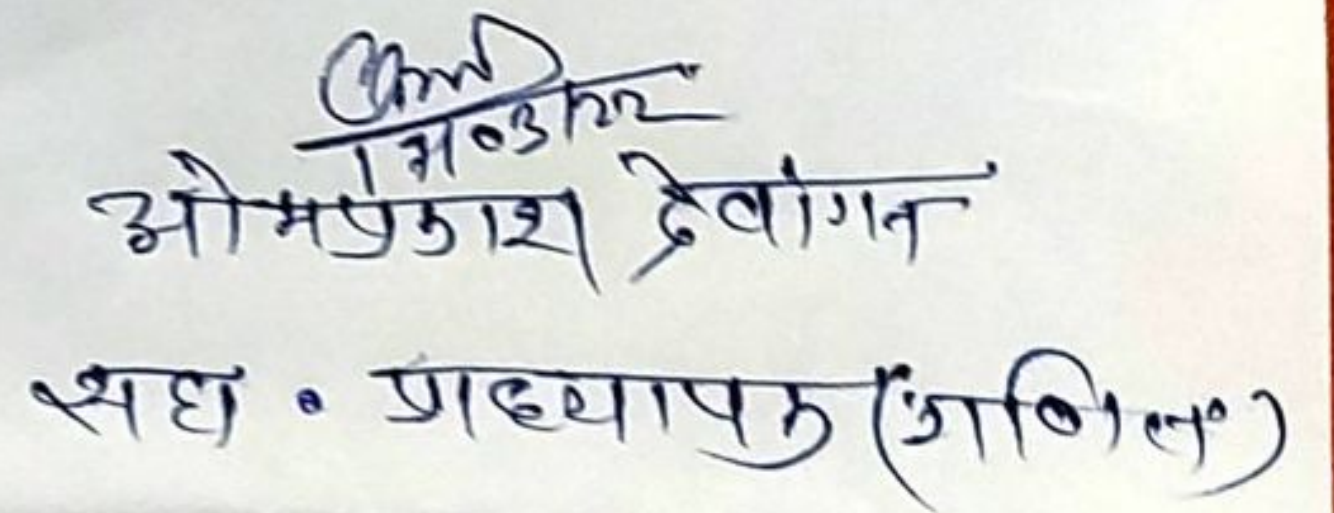 ओमप्रकाश देवांगन
सहा. प्राध्यापक (गणित)